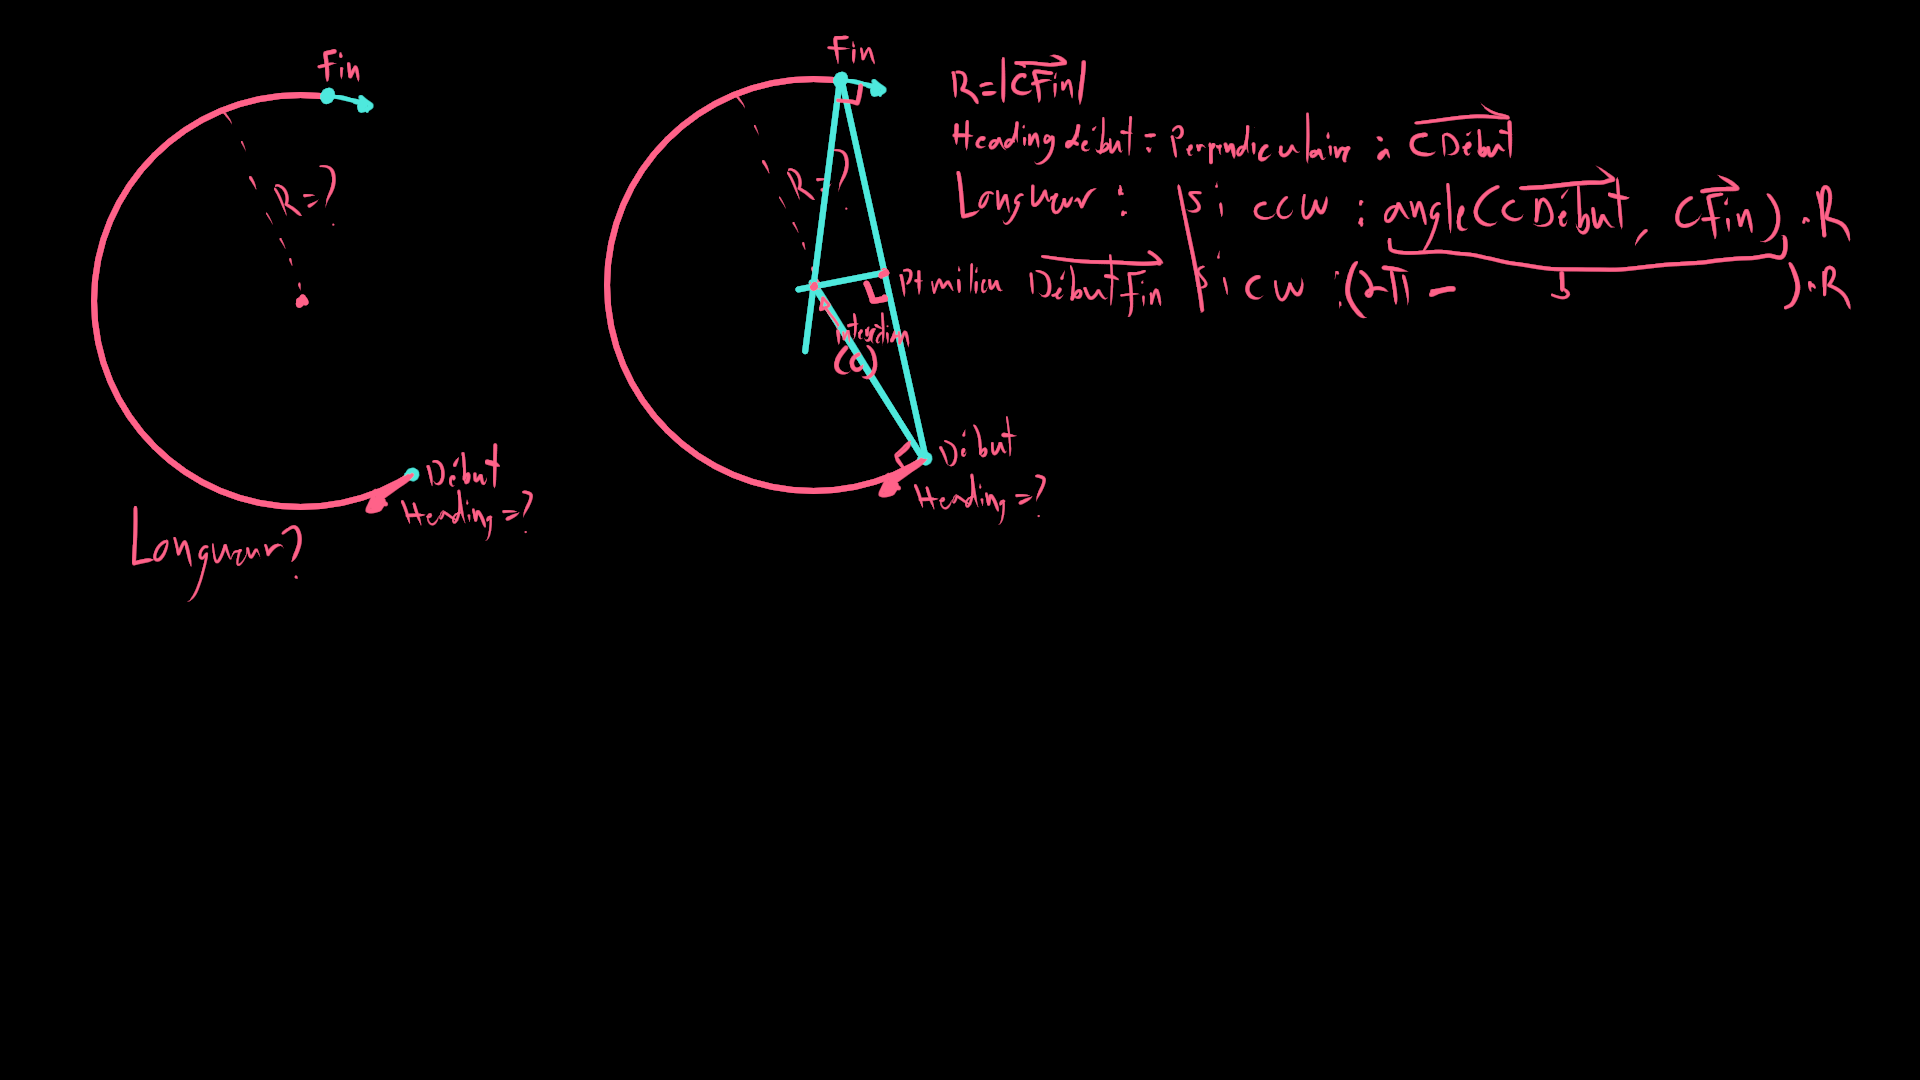 Fin
R=?
Début
Heading=?
Longueur?
Fin
R=?
Pt milieu DébutFin
intersection
(C)
Début
Heading=?
R=|CFin|
Heading début = Perpendiculaire à CDébut
Longueur : si ccw : angle(CDébut, CFin).R
si cw :(2π - ).R